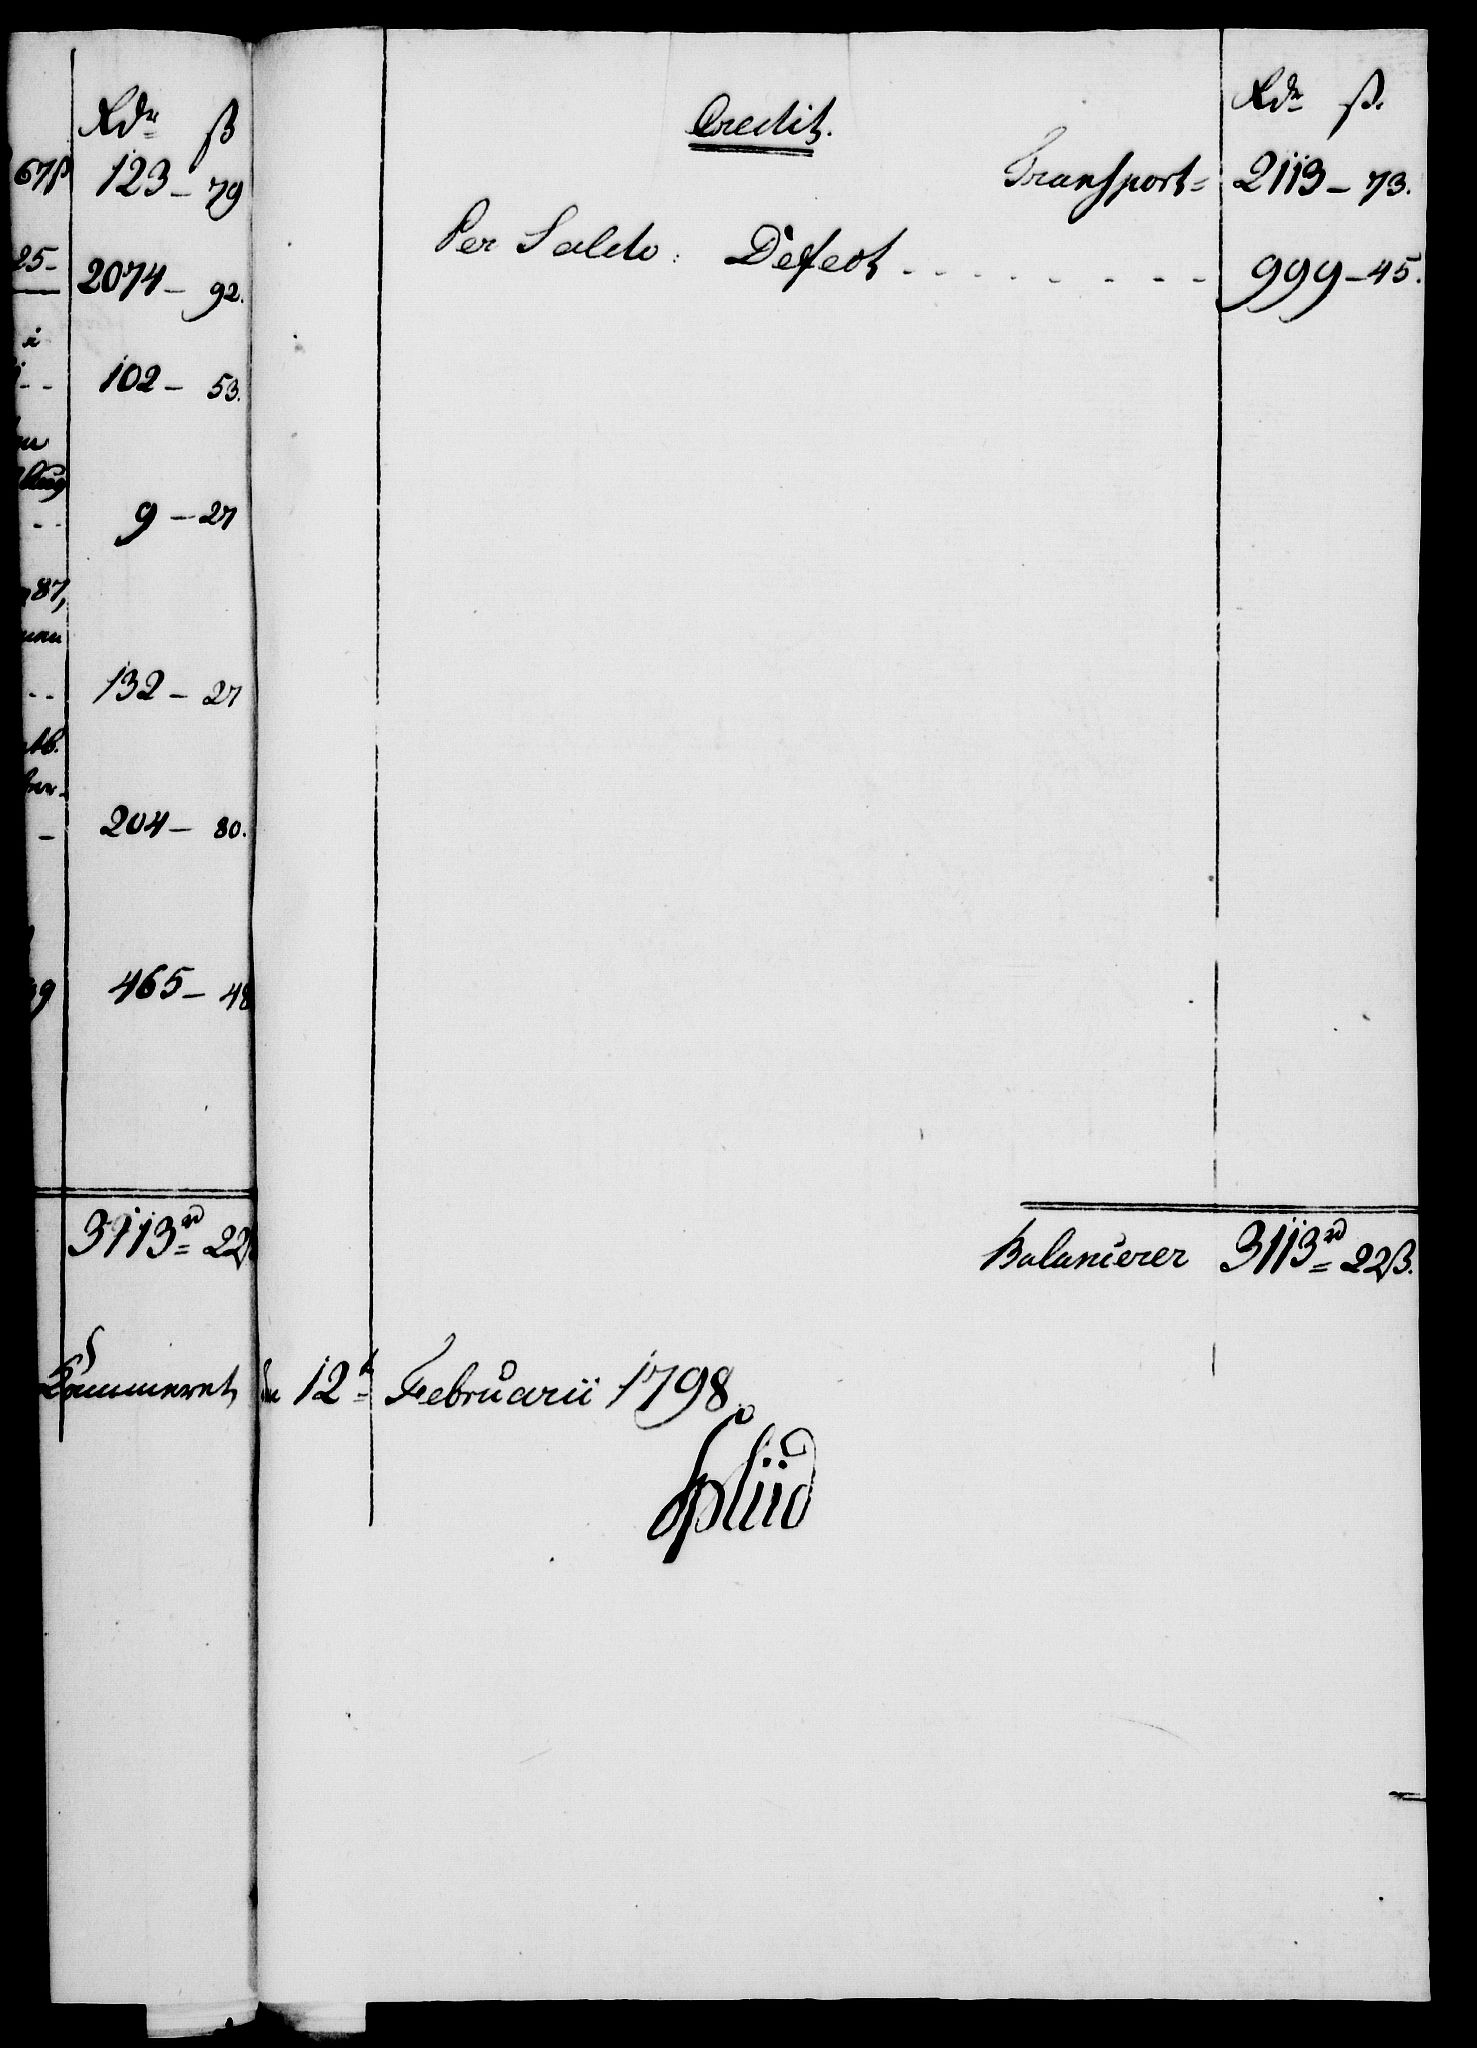 Rdr ß
67ß 123 – 79
25 – 2074 – 92.
102 – 53.
9 – 27
87,
132 – 27
204 – 80.
465 – 48
3113rd = 22
Credit.
Rdr ß.
Transport = 2113 – 73.
Per Saldo: Defect - - - - - - - 999 – 45.
Balancerer 3113rd = 22ß.
Kammeret den 12t Februarii 1798.
Spliid